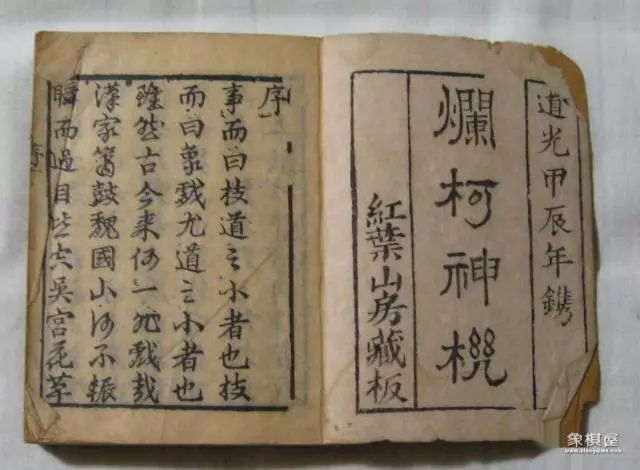 道光甲辰年鐫
爛柯神機
紅葉山房藏板
序
事而曰技道之小者也技
而曰象戲尤道之小者也
雖然古今来何一非戲哉
漢家簫鼓魏國山河不輾
瞬而過目吳宮花草
序
象棋屋